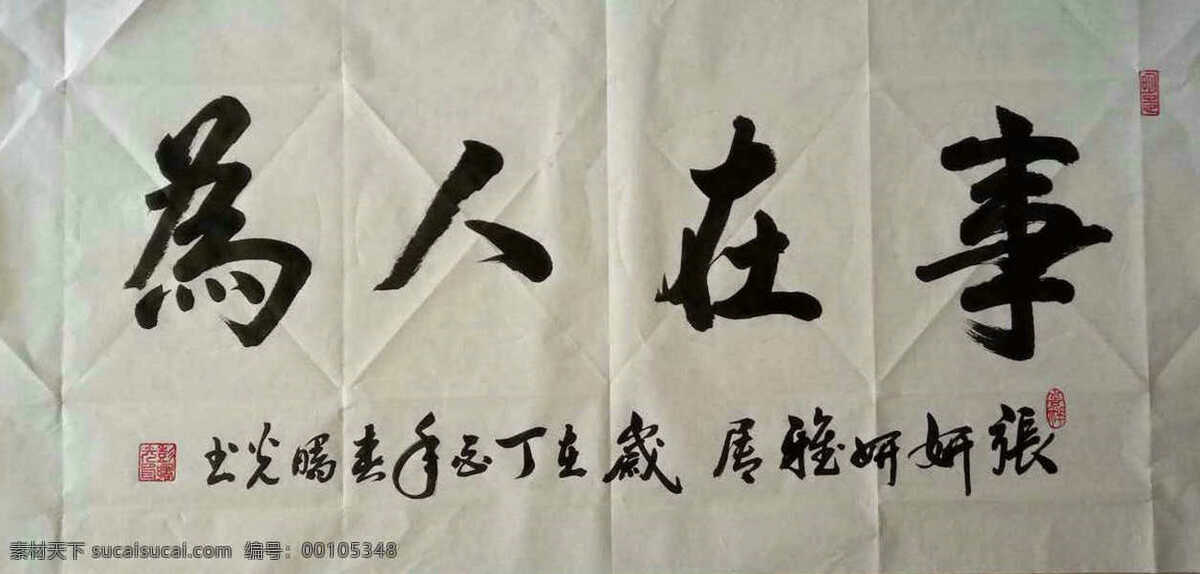 事在人為
張妍妍雅居 歲在丁酉年春曉光书
素材天下 sucaisucai.com 编号：00105348